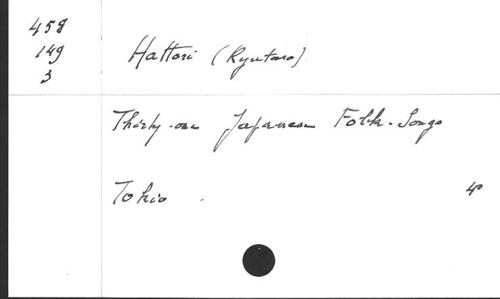 458
149
3
Hattori (Ryutaro)
Thirty-one Japanese Folk-Songs
Tokio .
4°